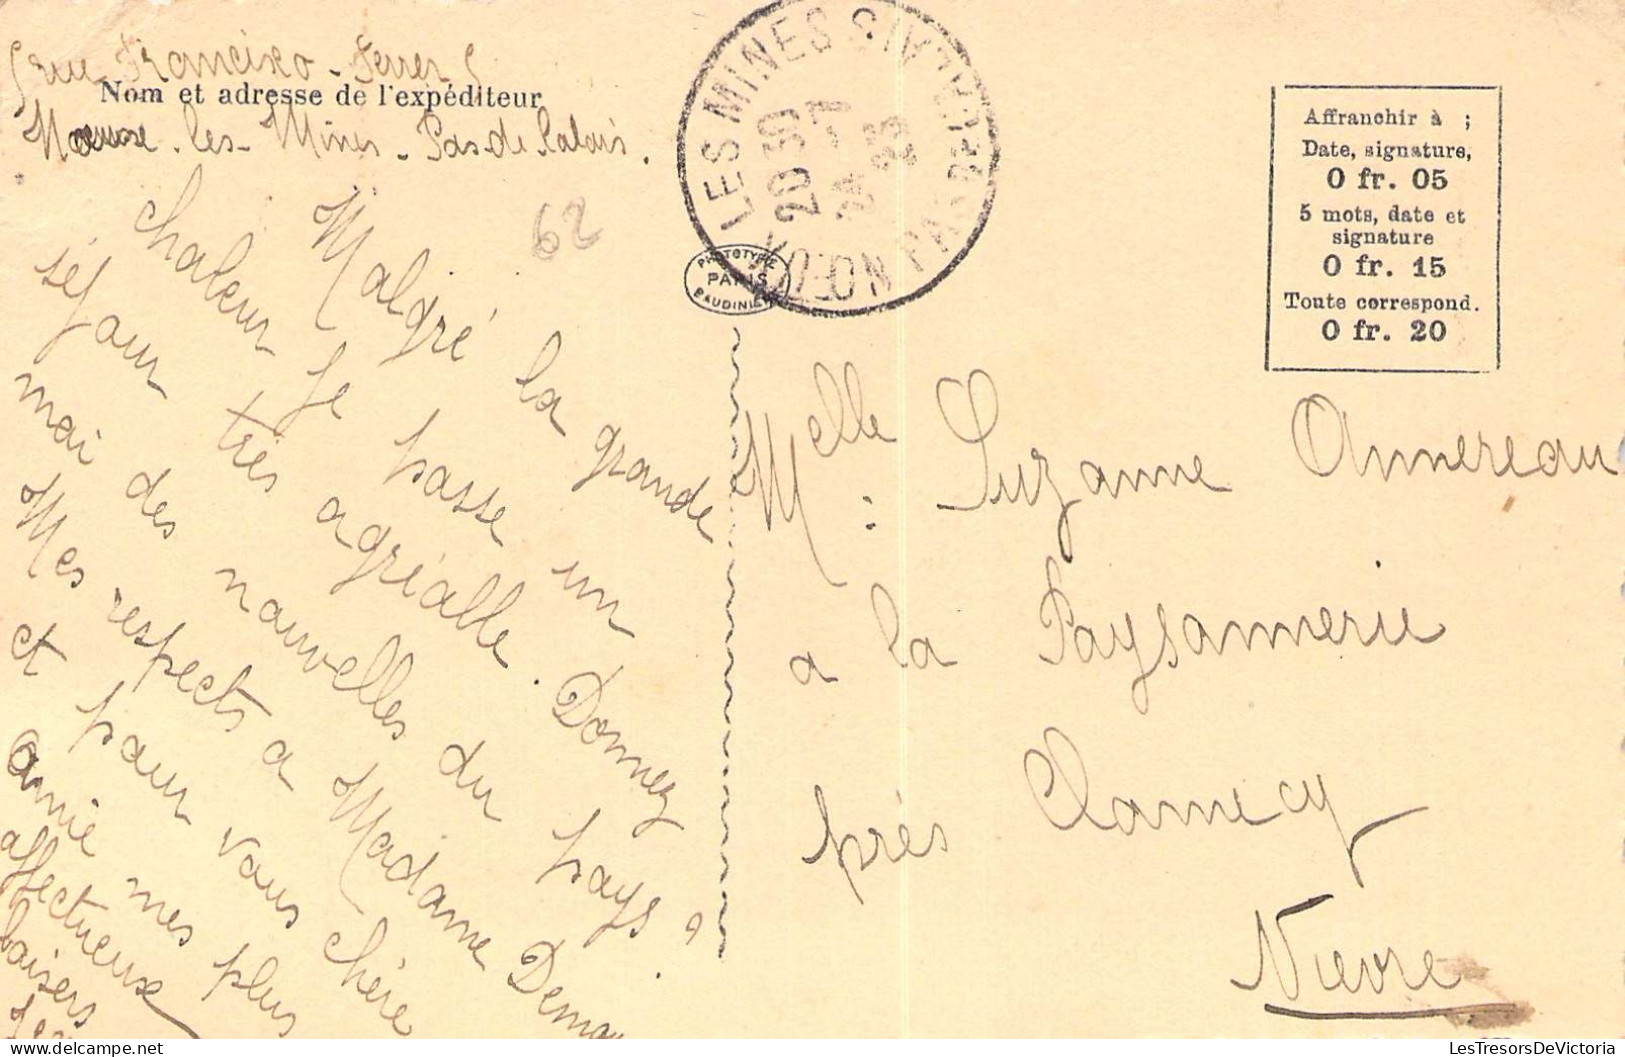 5 rue Francisco - Ferrer 5
Nom et adresse de l'expéditeur
les - Mines - Pas de Calais.
62
Malgré la grande
chaleur je passe un
séjour très agréable. Donnez
moi des nouvelles du pays ?
Mes respects a Madame
et pour vous chère
amie mes plus
affectueux
baisers
LES MINES
PAS DE CALAIS
20 30
24 - 7
PHOTOTYPIE
PARIS
BAUDINIERE
Affranchir à ;
Date, signature,
0 fr. 05
5 mots, date et
signature
0 fr. 15
Toute correspond.
0 fr. 20
Melle : Suzanne Annereau
a la Paysannerie
près Clamecy
Nievre
LesTresorsDeVictoria